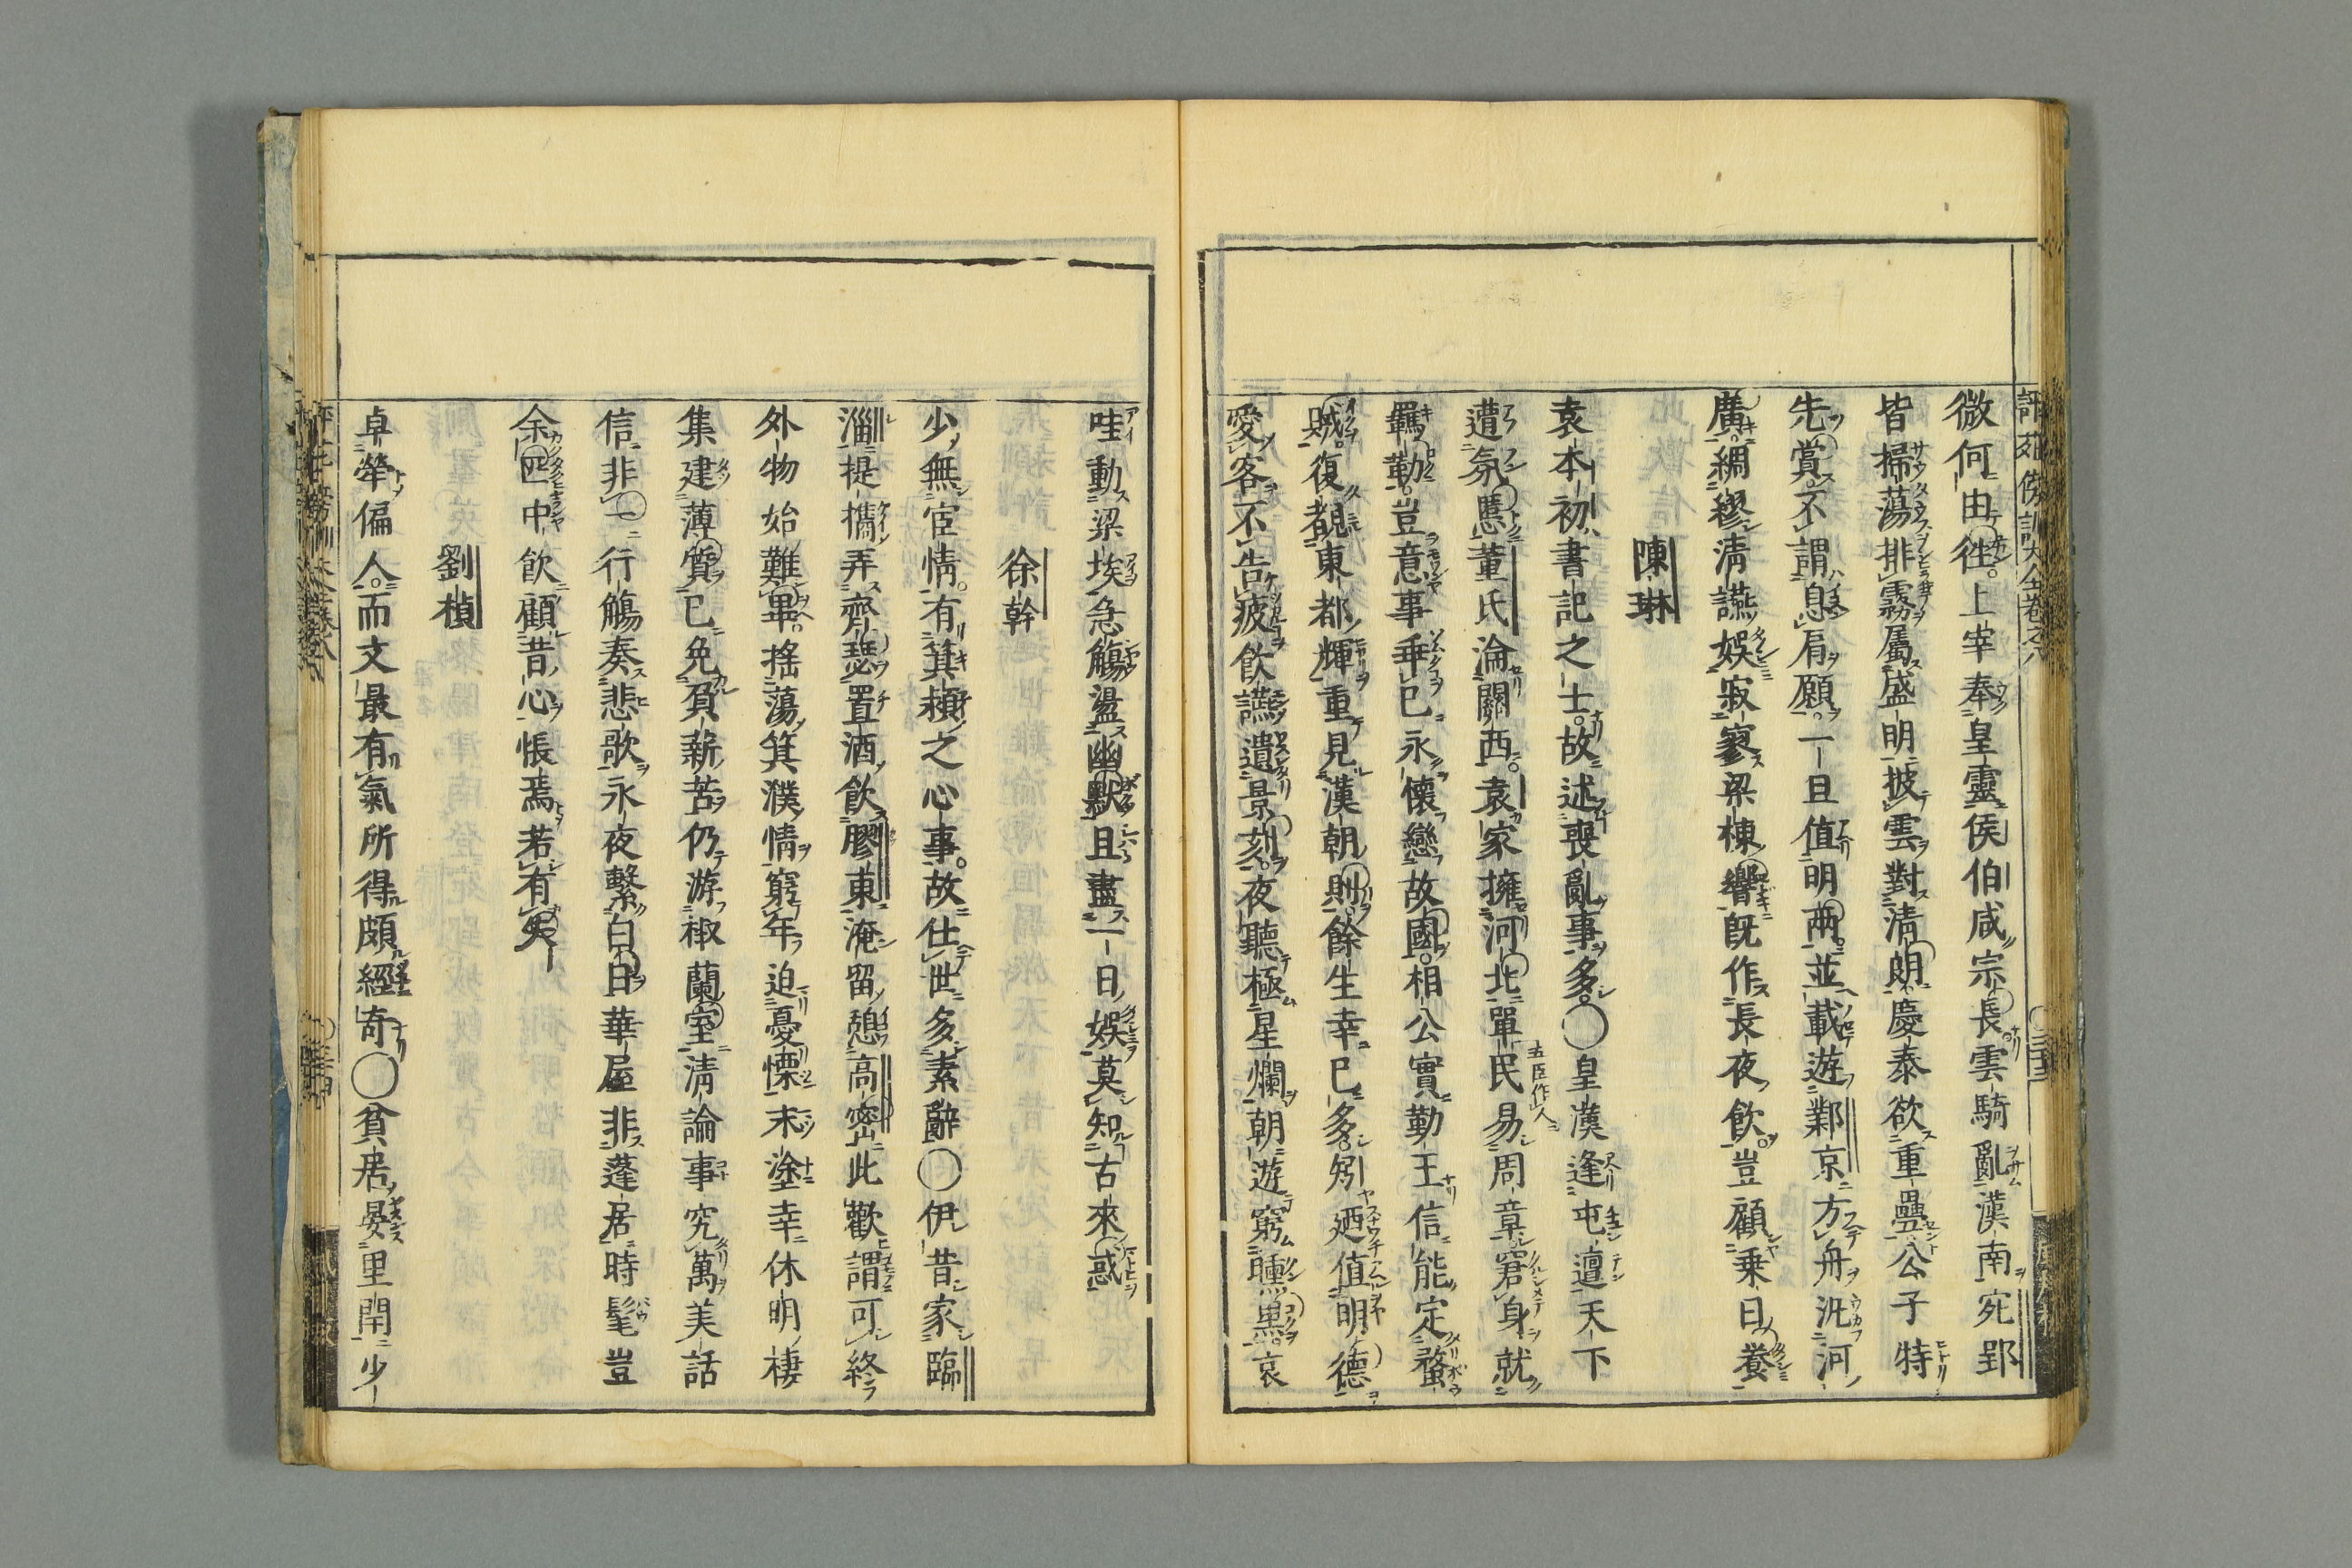 微何由往上宰奉皇靈侯伯咸宗長雲騎亂漢南宛郢
皆掃蕩排霧屬盛明披雲對清朗慶泰欲重疊公子特
先賞不謂息肩願一旦值明兩並載遊鄴京方舟汎河
廣綢繆清讌娛寂寥梁棟響既作長夜飲豈顧乗日養
陳琳
袁本初書記之士故述喪亂事多○皇漢逢屯邅天下
遭氛慝董氏淪關西袁家擁河北單民易周章窘身就
五臣作人
羈勒豈意事乖已永懷戀故國相公實勤王信能定蝥
賊復覩東都輝重見漢朝則餘生幸已多矧廼值明德
愛客不告疲飲讌遺景刻夜聽極星爛朝遊窮曛黒哀
哇動梁埃急觴盪幽默且盡一日娛莫知古來惑
徐幹
少無宦情有箕潁之心事故仕世多素辭○伊昔家臨
淄提攜弄齊瑟置酒飲膠東淹留憩高密此歡謂可終
外物始難畢搖蕩箕濮情窮年迫憂慄末塗幸休明棲
集建薄質已免負薪苦仍游椒蘭室清論事究萬美話
信非一行觴奏悲歌永夜繫白日華屋非蓬居時髦豈
余匹中飲顧昔心悵焉若有失
劉楨
卓犖偏人而文最有氣所得頗經奇○貧居晏里閈少